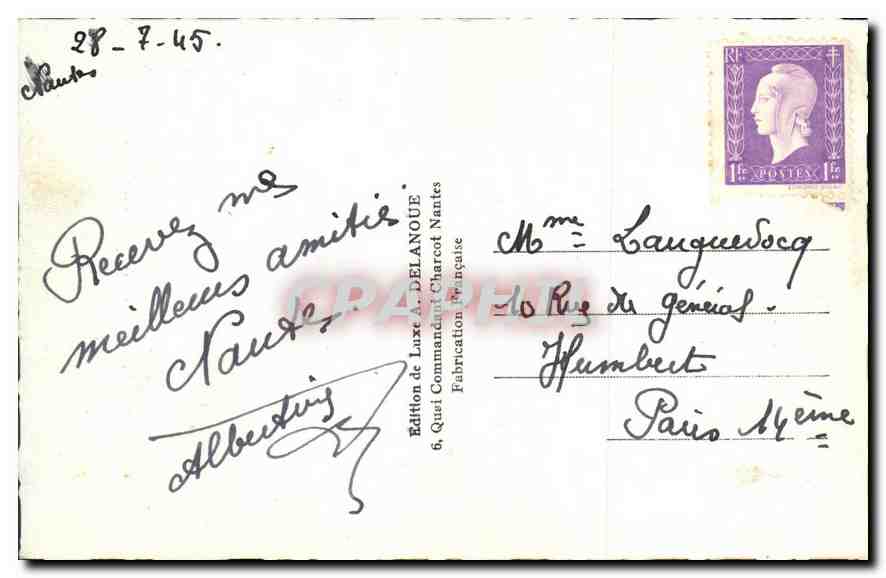 28-7-45.
Nantes
Recevez mes
meilleurs amitiés
Nantes.
Albertine
Édition de Luxe A. DELANOUE
6, Quai Commandant Charcot Nantes
Fabrication Française
RF
1Fr
POSTES
1Fr
Mme Languedocq
10 Rue de général.
Humbert
Paris 14ème
CPAPHIL